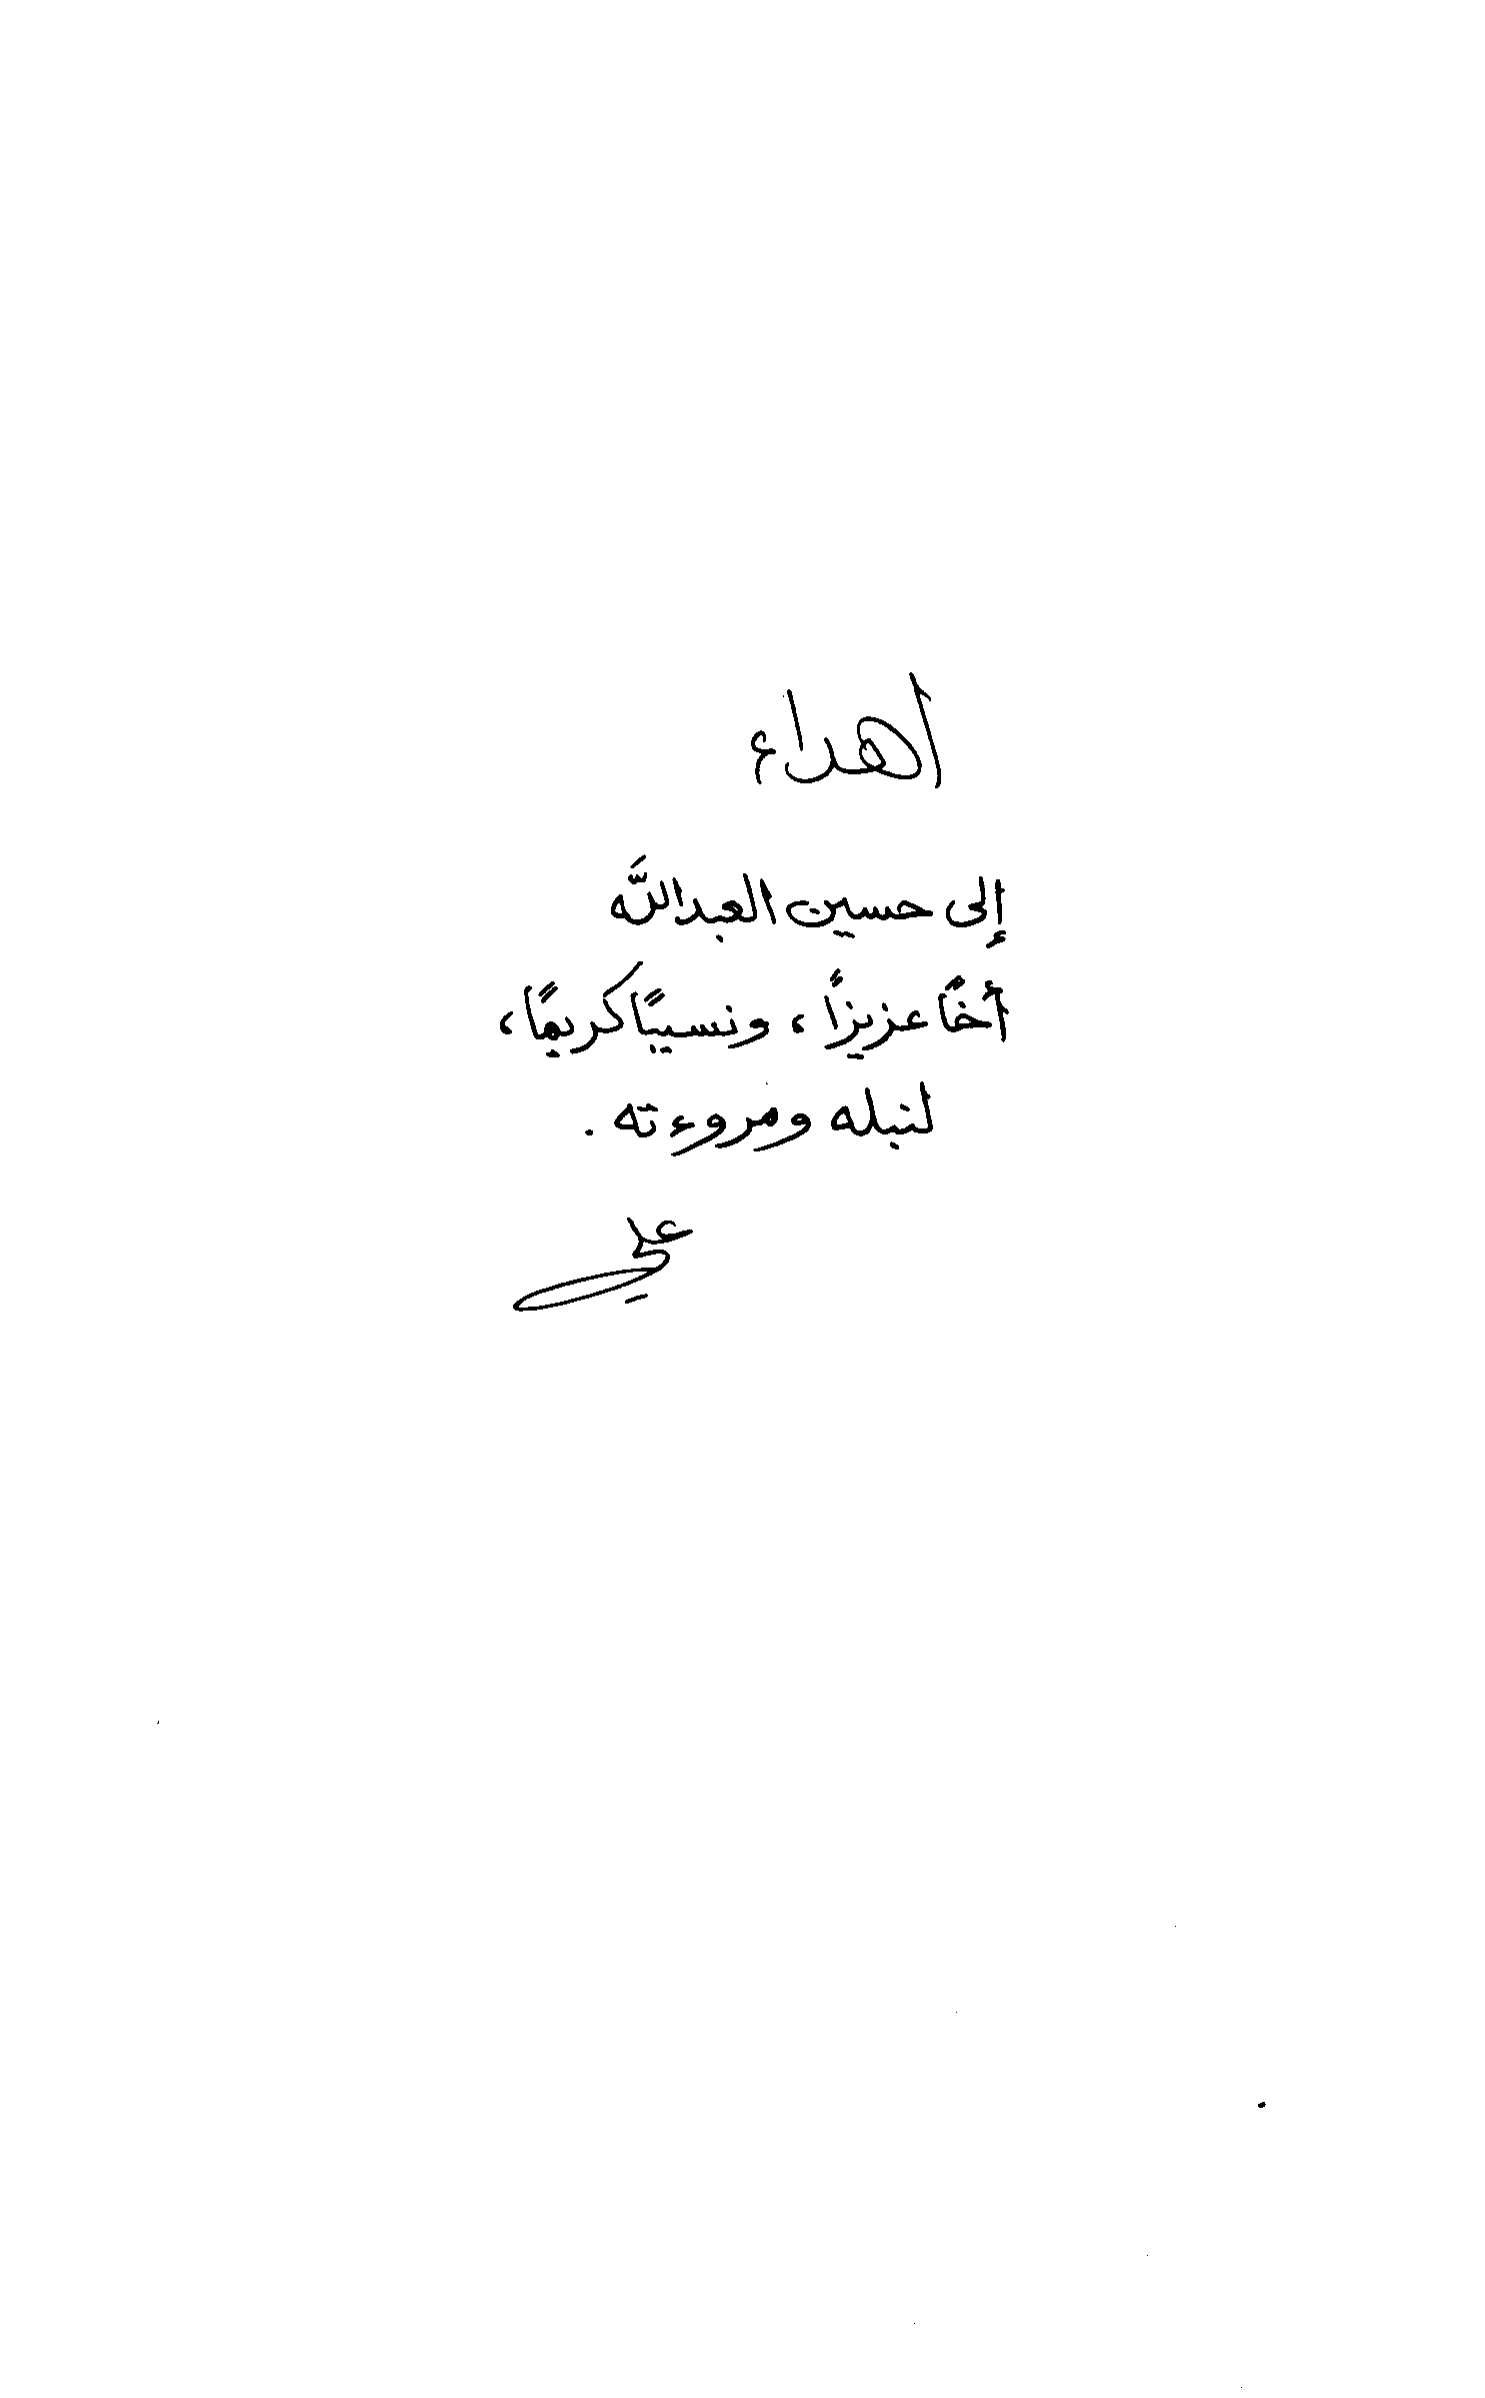 اهداء
إلى حسين العبدالله
أخًا عزيزًا، ونسيبًا كريمًا،
لنبله ومروءته.
علي